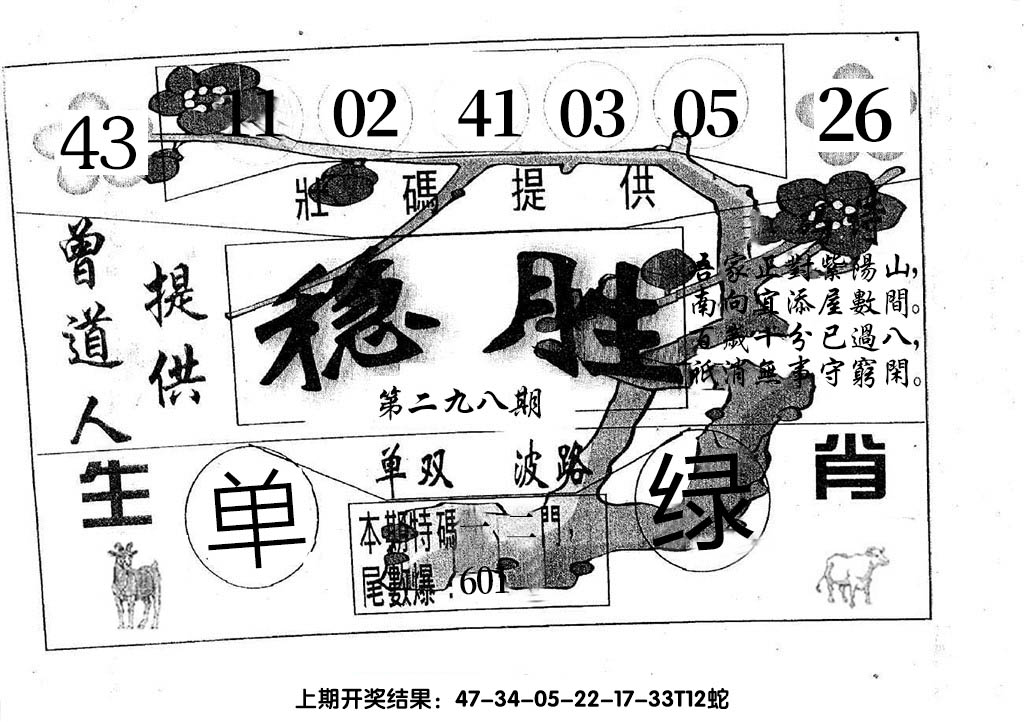 43 11 02 41 03 05 26
壯碼提供
曾道人
提供
稳胜
第二九八期
吾家正對紫陽山，
南向宜添屋數間。
百歲十分已過八，
祇消無事守窮閑。
单双 波路
生 肖
单
绿
本期特碼一、二門，
尾數爆：601
上期开奖结果：47-34-05-22-17-33T12蛇